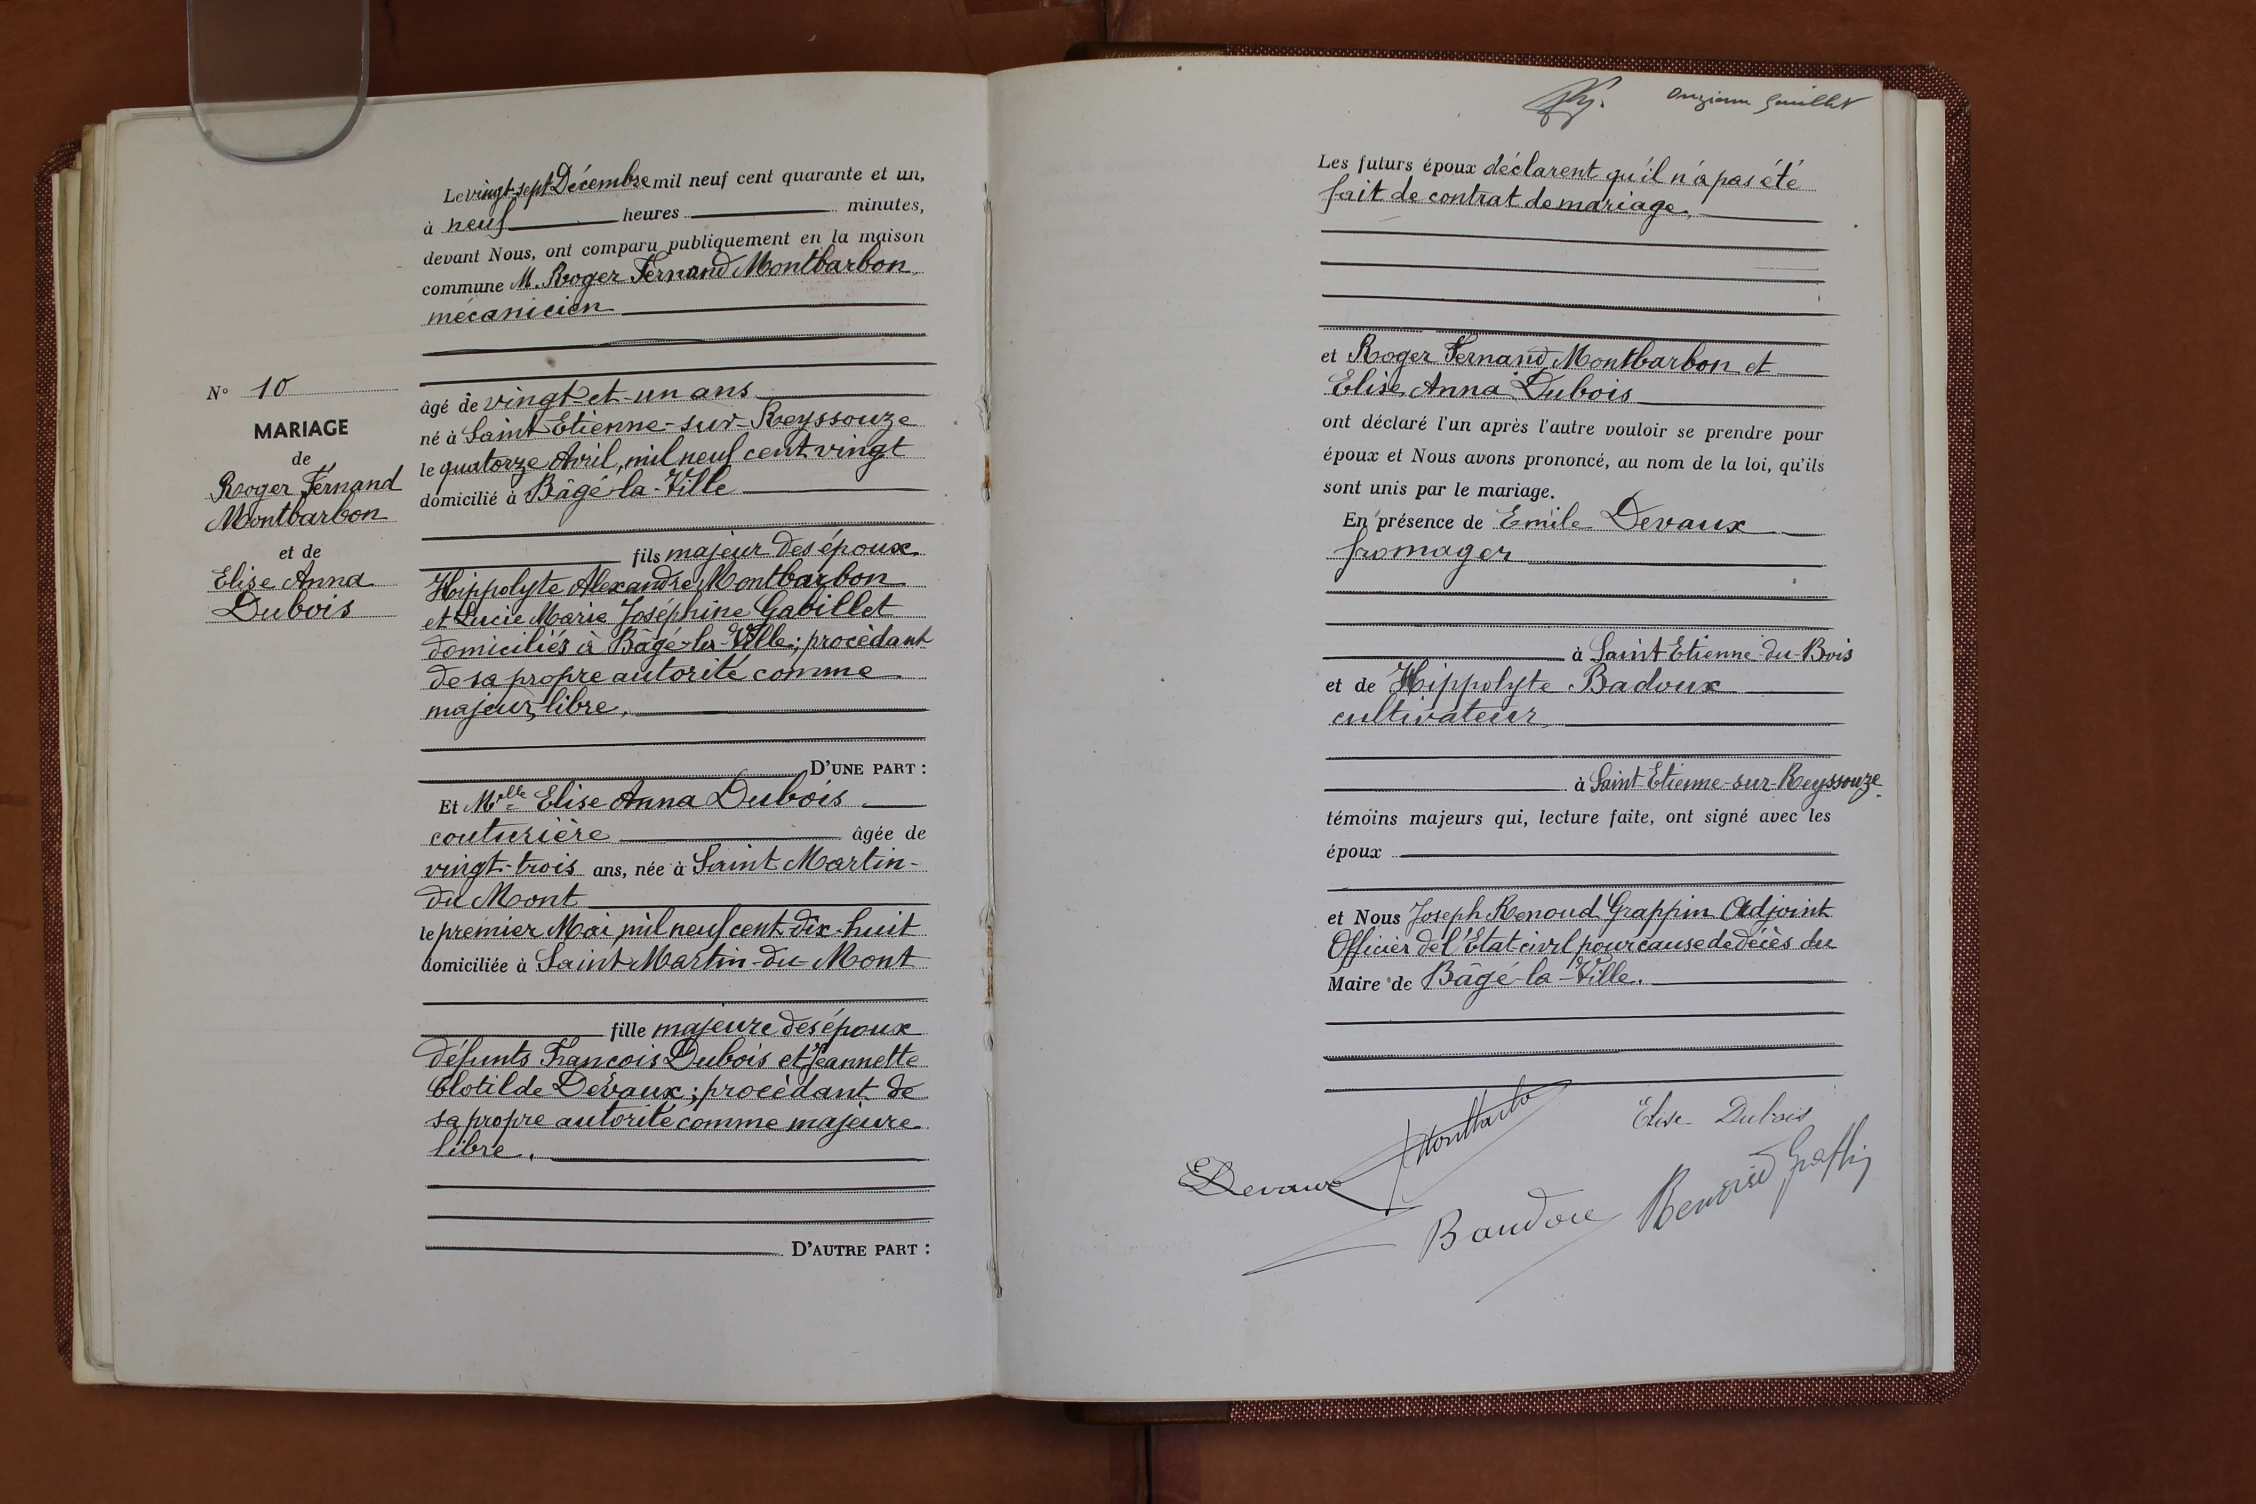 Le vingt-sept Décembre mil neuf cent quarante et un,
à neuf heures minutes,
devant Nous, ont comparu publiquement en la maison
commune M. Roger Fernand Montbarbon
mécanicien
N° 10
MARIAGE
de
Roger Fernand
Montbarbon
et de
Elise Anna
Dubois
âgé de vingt-et-un ans
né à Saint Etienne-sur-Reyssouze
le quatorze Avril, mil neuf cent vingt
domicilié à Bâgé-la-Ville
fils majeur des époux
Hippolyte Alexandre Montbarbon
et Lucie Marie Joséphine Gabillet
domiciliés à Bâgé-la-Ville; procèdant
de sa propre autorité comme
majeur libre.
D'UNE PART :
Et Melle Elise Anna Dubois
couturière âgée de
vingt-trois ans, née à Saint Martin-
du Mont
le premier Mai, mil neuf cent dix-huit
domiciliée à Saint Martin-du-Mont
fille majeure des époux
défunts François Dubois et Jeannette
Clotilde Devaux; procèdant de
sa propre autorité comme majeure
libre.
D'AUTRE PART :
Les futurs époux déclarent qu'il n'a pas été
fait de contrat de mariage.
et Roger Fernand Montbarbon et
Elise Anna Dubois
ont déclaré l'un après l'autre vouloir se prendre pour
époux et Nous avons prononcé, au nom de la loi, qu'ils
sont unis par le mariage.
En présence de Emile Devaux
fromager
à Saint Etienne-du-Bois
et de Hippolyte Badoux
cultivateur
à Saint Etienne-sur-Reyssouze
témoins majeurs qui, lecture faite, ont signé avec les
époux
et Nous Joseph Renoud Grappin Adjoint
Officier de l'Etat-civil pour cause de décès du
Maire de Bâgé-la-Ville.
Elise Dubois
EDevaux